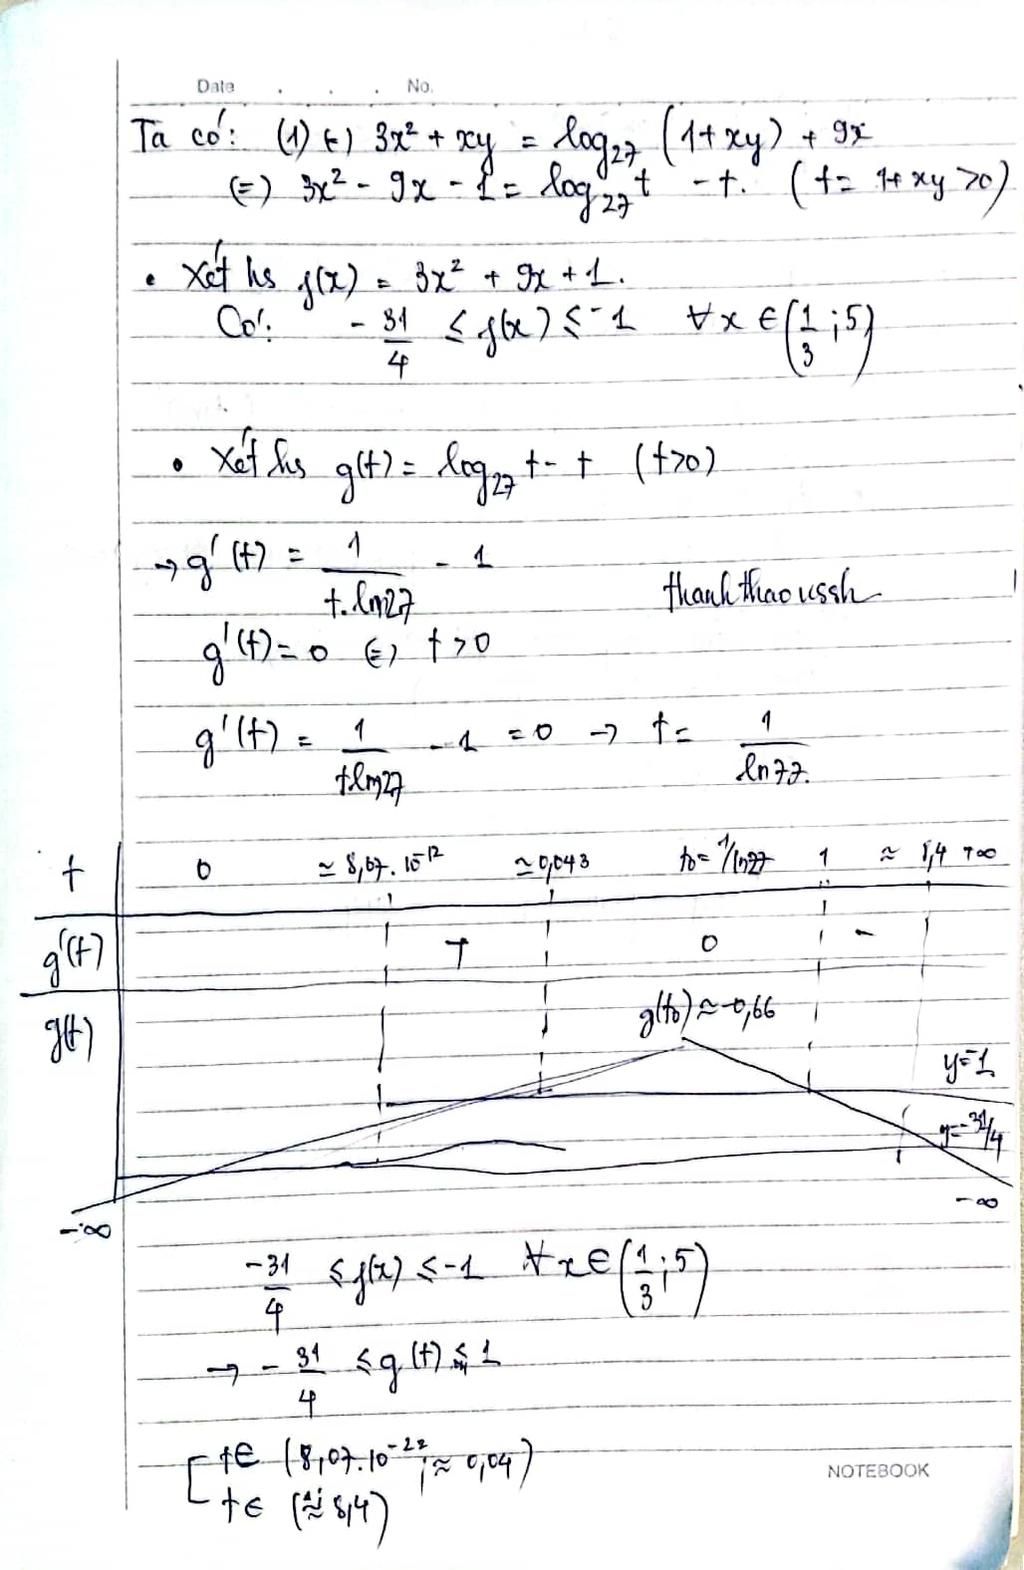 Date . . . No.
Ta có: (1) (=) 3x² + xy = log₂₇ (1+xy) + 9x
(=) 3x² - 9x - 1 = log₂₇ t - t. (t = 1+xy >0)
• Xét hs f(x) = 3x² + 9x + 1.
Có: - 31/4 ≤ f(x) ≤ -1 ∀x ∈ (1/3 ; 5)
• Xét hs g(t) = log₂₇ t - t (t>0)
→ g'(t) = 1/(t.ln27) - 1
thanhthaoussh
g'(t) = 0 (=) t > 0
g'(t) = 1/(tln27) - 1 = 0 → t = 1/ln27.
t 0 ≃ 8,07.10⁻¹² ≃ 0,043 t₀ = 1/ln27 1 ≈ 8,4 +∞
g'(t) + 0 -
g(t) g(t₀) ≃ -0,66
y=1
y=-31/4
-∞ -∞
-31/4 ≤ f(x) ≤ -1 ∀x ∈ (1/3 ; 5)
→ - 31/4 ≤ g(t) ≤ 1
[ t ∈ (8,07.10⁻²² ; ≈ 0,04)
t ∈ (1; ≈ 8,4)
NOTEBOOK